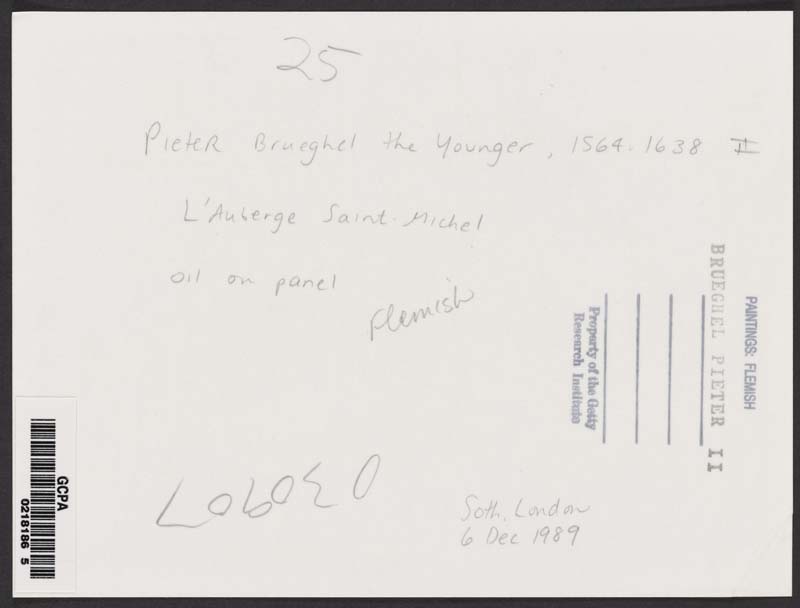 25
Pieter Brueghel the Younger, 1564-1638 II
L'Auberge Saint-Michel
oil on panel
Flemish
PAINTINGS: FLEMISH
BRUEGHEL PIETER II
Property of the Getty
Research Institute
GCPA
0218186 5
Soth. London
6 Dec 1989